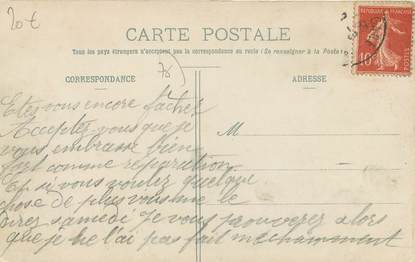 20 €
CARTE POSTALE
Tous les pays étrangers n'acceptent pas la correspondance au recto (Se renseigner à la Poste)
78
CORRESPONDANCE
ADRESSE
RÉPUBLIQUE FRANÇAISE
10
POSTES
M
Etes vous encore fachée
Acceptez vous que je
vous embrasse bien
fort comme réparation
Et si vous voulez quelque
chose de plus vous me le
direz samedi Je vous prouverez alors
que je ne l'ai pas fait mechamment